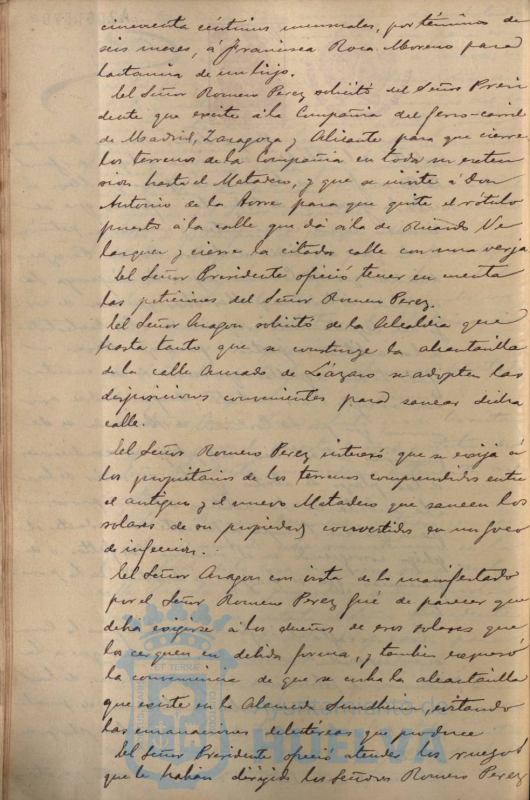 cincuenta céntimos mensuales, por término de
seis meses, á Francisca Roca Moreno para
lactancia de un hijo.
El Señor Romero Perez solicitó del Señor Presi
dente que excite á la Compañia del ferro-carril
de Madrid, Zaragoza y Alicante para que cierre
los terrenos de la Compañia en toda su exten
sion hasta el Matadero, y que se invite á Don
Antonio de la Torre para que quite el rótulo
puesto á la calle que dá á la de Ricardo Ve
lazquez y cierre la citada calle con una verja
El Señor Presidente ofreció tener en cuenta
las peticiones del Señor Romero Perez.
El Señor Aragon solicitó de la Alcaldia que
hasta tanto que se construye la alcantarilla
de la calle Amado de Lázaro se adopten las
disposiciones convenientes para sanear dicha
calle.
El Señor Romero Perez interesó que se exija á
los propietarios de los terrenos comprendidos entre
el antiguo y el nuevo Matadero que saneen los
solares de su propiedad convertidos en un foco
de infeccion.
El Señor Aragon con vista de lo manifestado
por el Señor Romero Perez fué de parecer que
debia exigirse á los dueños de esos solares que
los cerquen en debida forma, y tambien expresó
la conveniencia de que se cubra la alcantarilla
que existe en la Alameda Sundheim, evitando
las emanaciones deletéreas que produce
El Señor Presidente ofreció atender los ruegos
que le habian dirigido los Señores Romero Perez
HUELVA